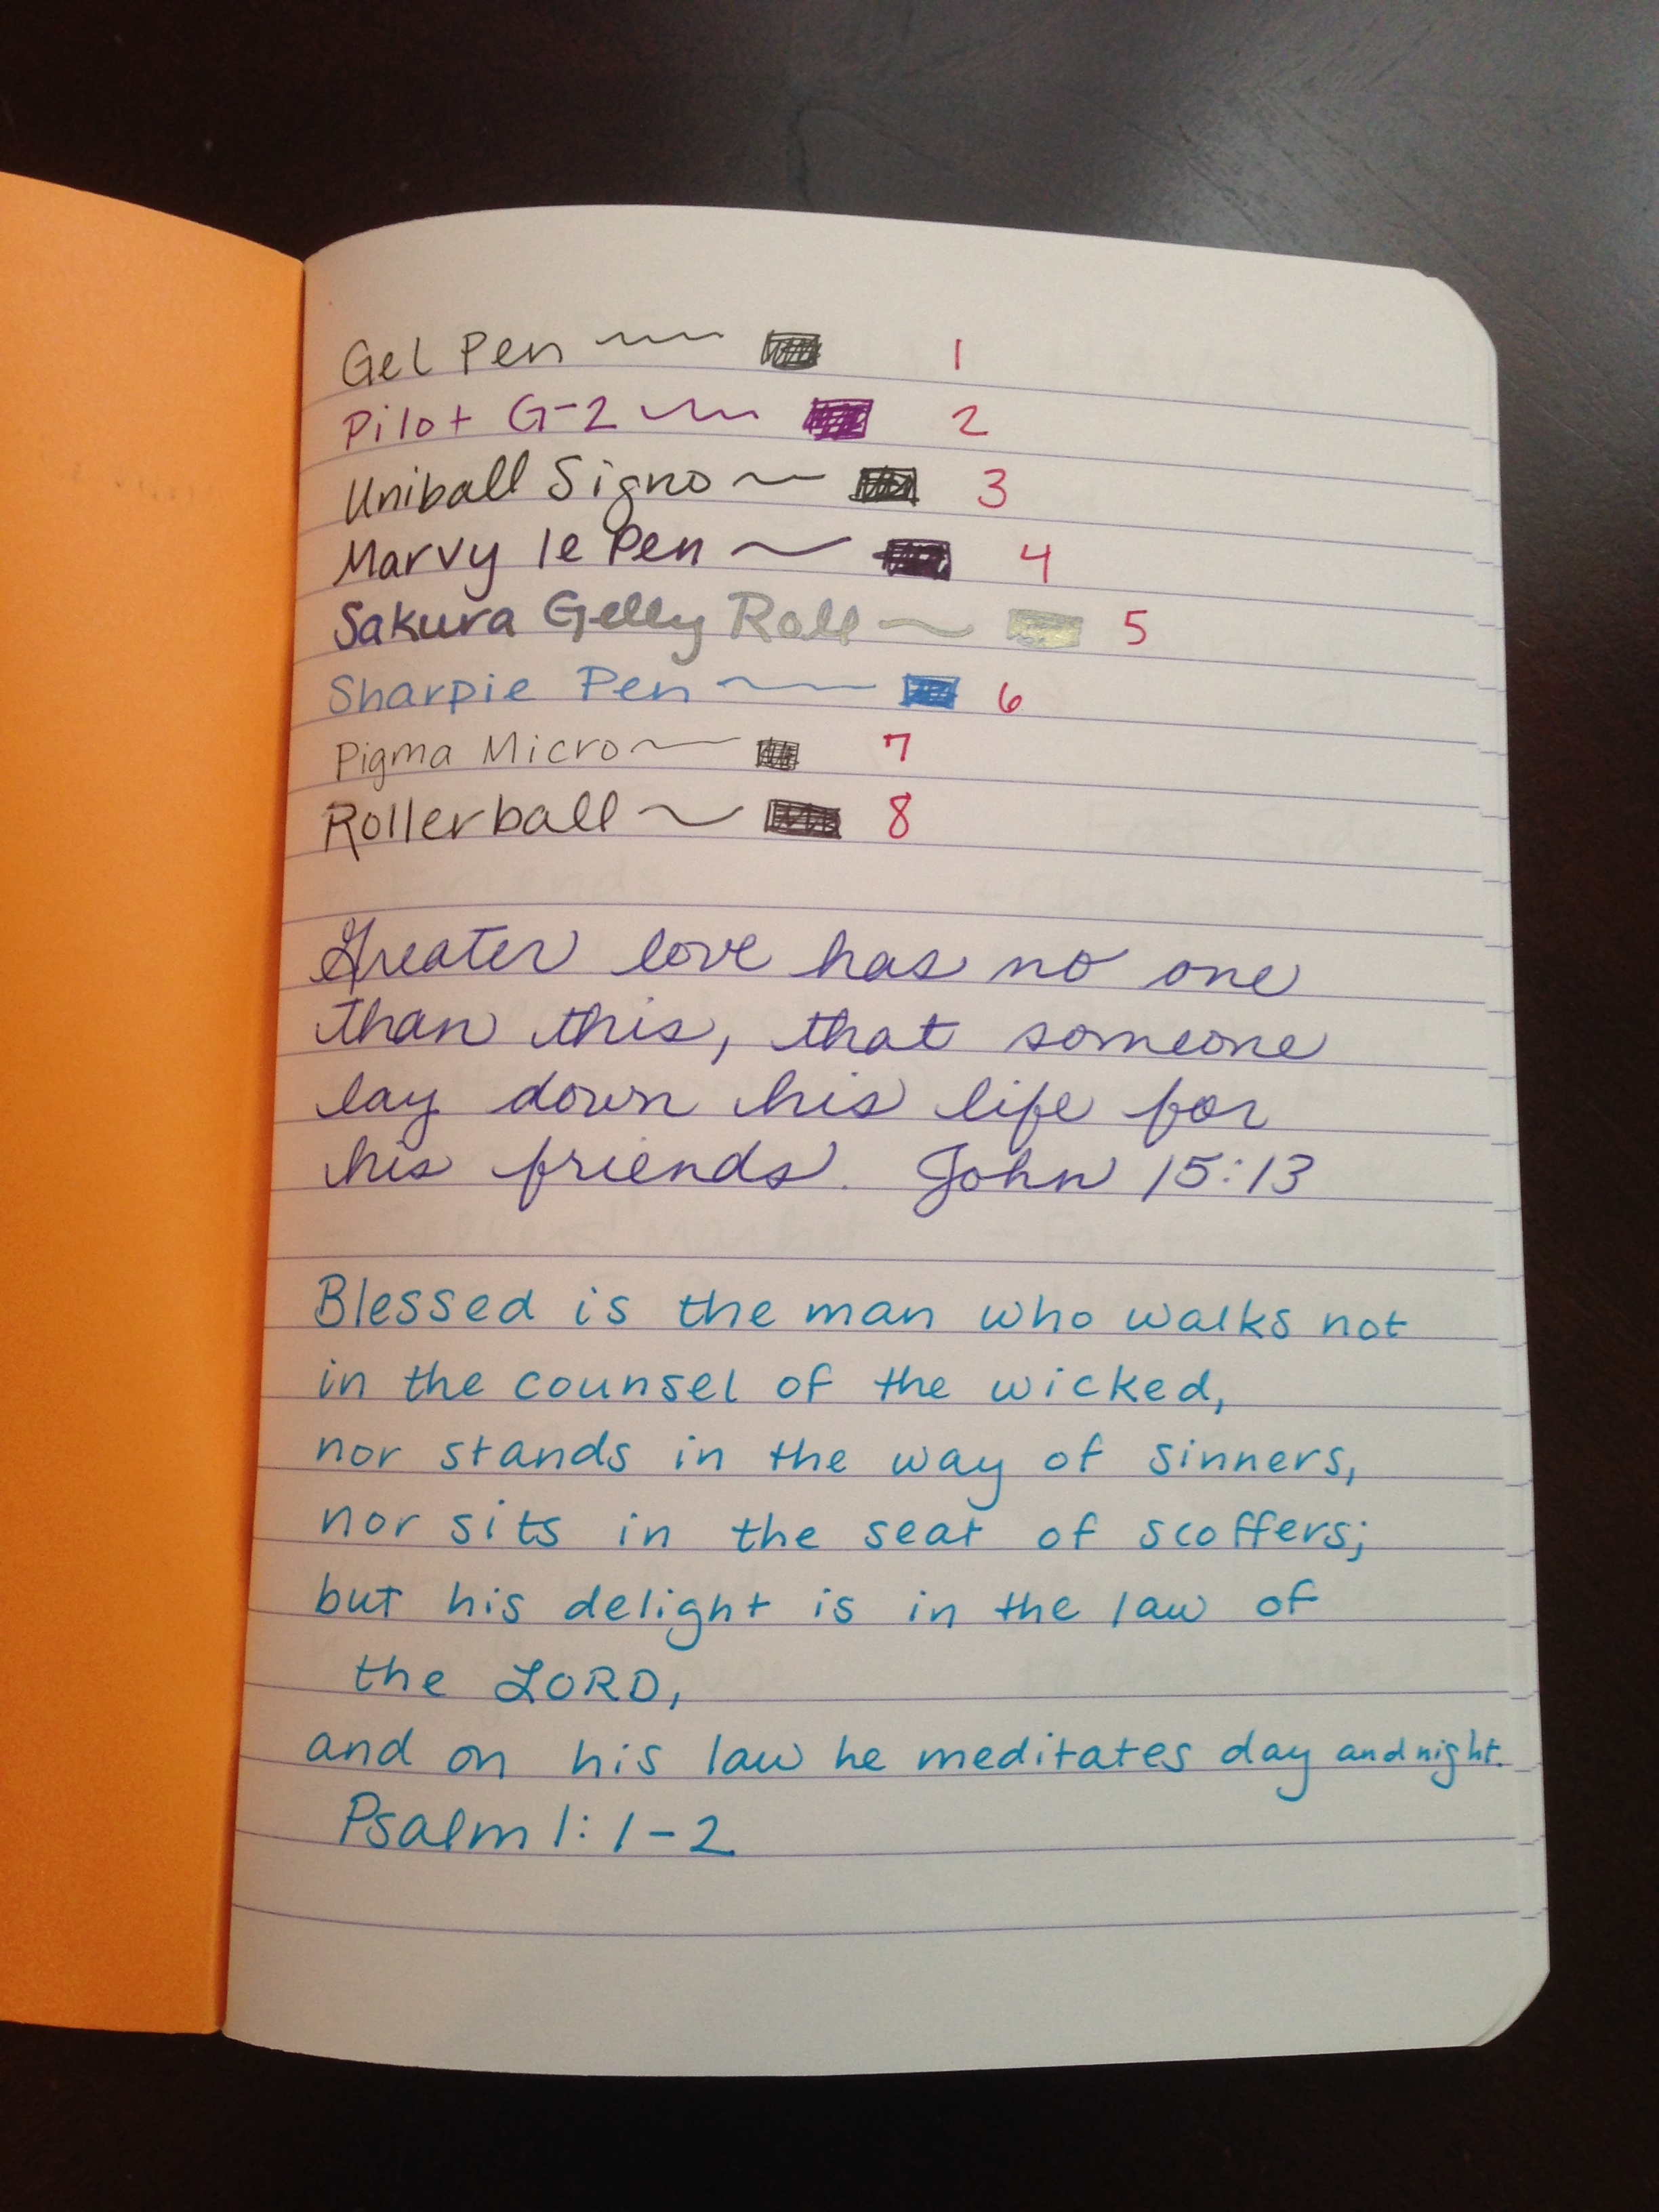 Gel Pen 1
Pilot G-2 2
Uniball Signo 3
Marvy le Pen 4
Sakura Gelly Roll 5
Sharpie Pen 6
Pigma Micro 7
Rollerball 8
Greater love has no one
than this, that someone
lay down his life for
his friends. John 15:13
Blessed is the man who walks not
in the counsel of the wicked,
nor stands in the way of sinners,
nor sits in the seat of scoffers;
but his delight is in the law of
the LORD,
and on his law he meditates day and night.
Psalm 1:1-2